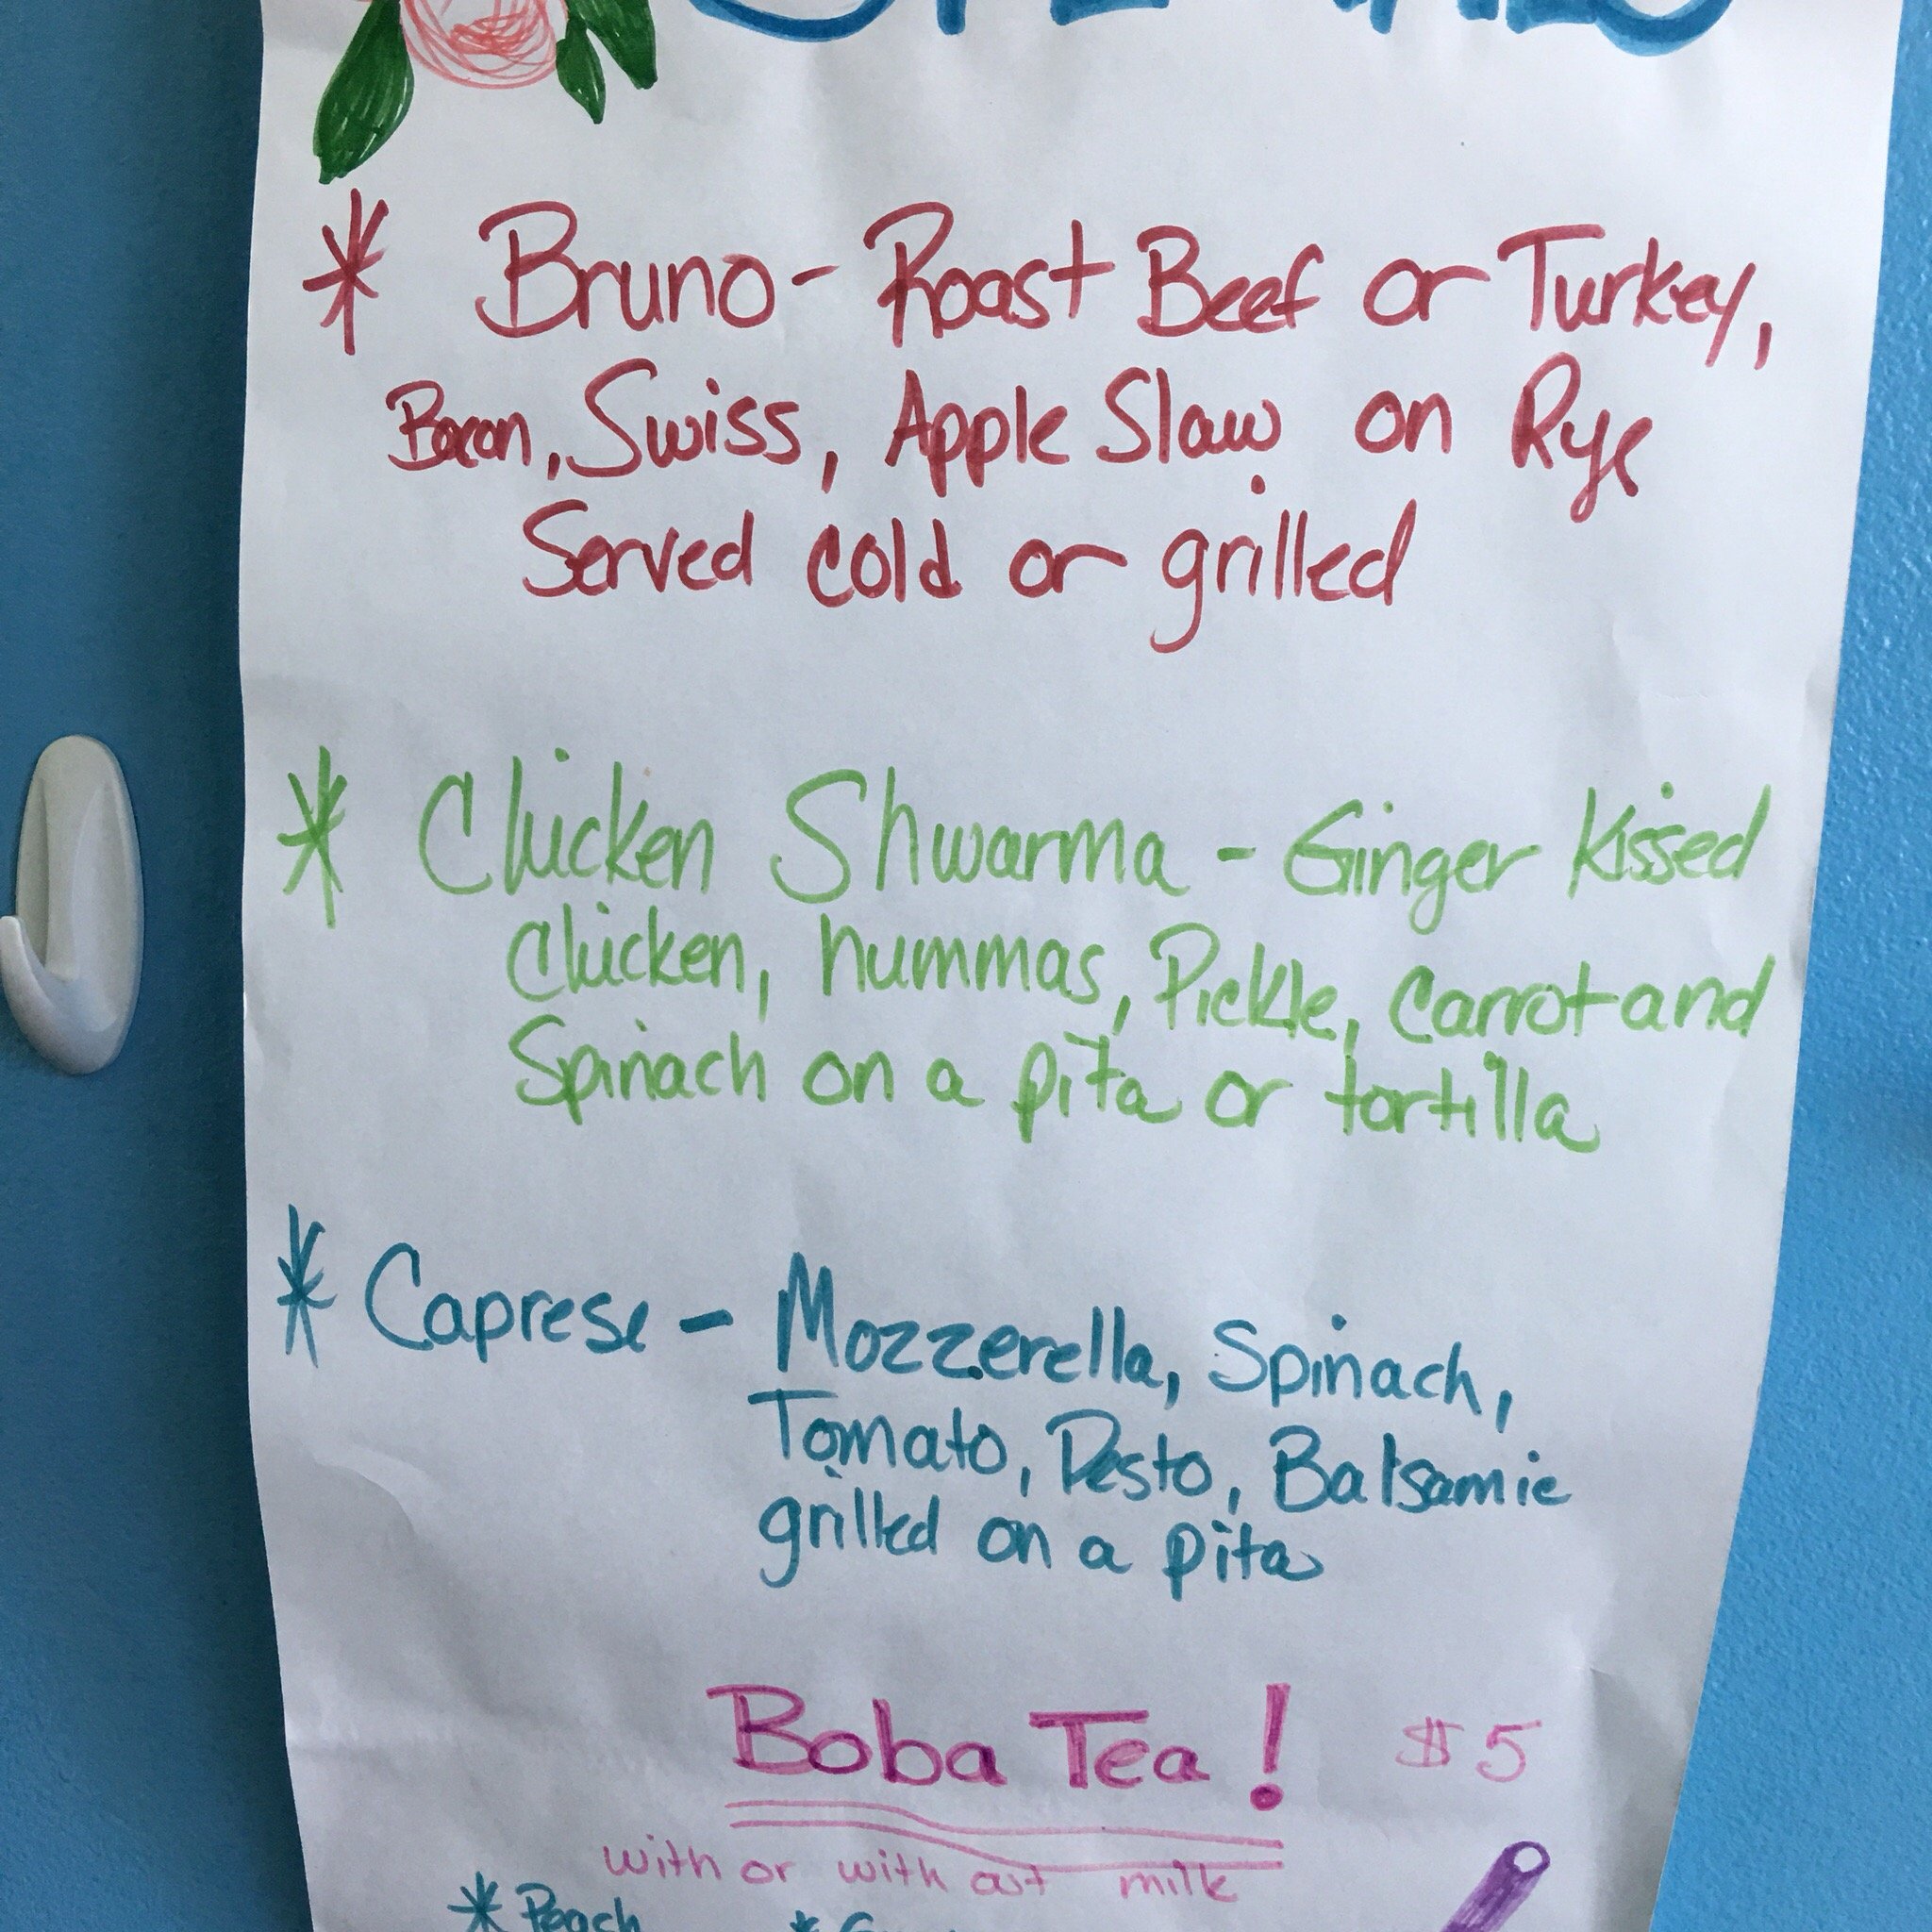 * Bruno - Roast Beef or Turkey,
Bacon, Swiss, Apple Slaw on Rye
Served cold or grilled
* Chicken Shwarma - Ginger Kissed
Chicken, hummas, Pickle, Carrot and
Spinach on a pita or tortilla
* Caprese - Mozzerella, Spinach,
Tomato, Pesto, Balsamic
grilled on a pita
Boba Tea! $5
with or with out milk
* Peach *